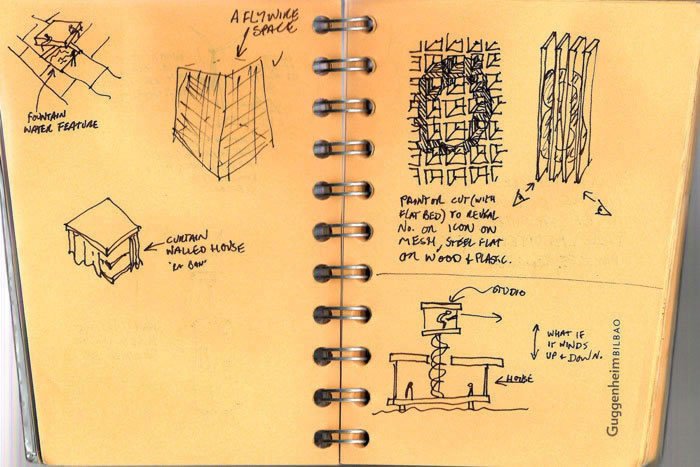 A FLYWIRE
SPACE
FOUNTAIN
WATER FEATURE
CURTAIN
WALLED HOUSE
PAINT OR CUT (WITH
FLAT BED) TO REVEAL
NO. OR ICON ON
MESH, STEEL FLAT
OR WOOD & PLASTIC.
STUDIO
WHAT IF
IT WINDS
UP & DOWN.
HOUSE
Guggenheim BILBAO